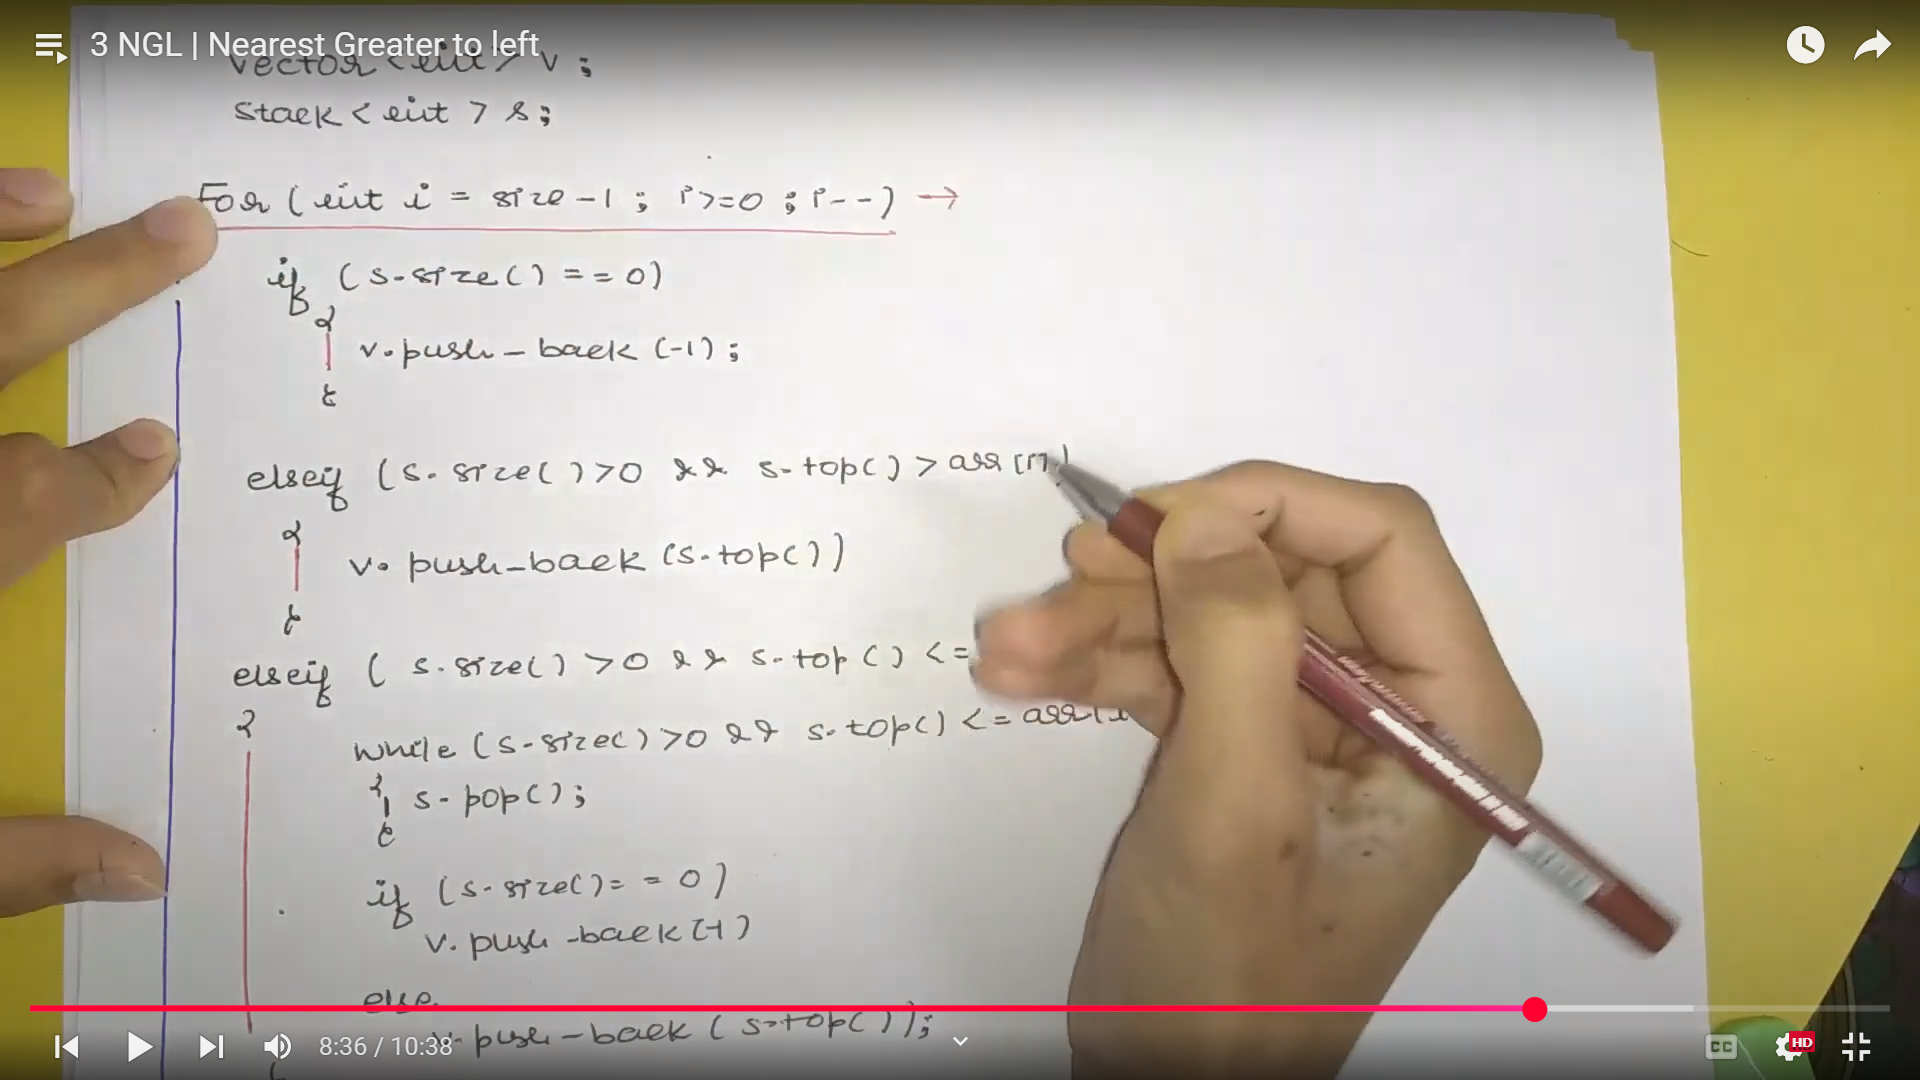 3 NGL | Nearest Greater to left
vector <int> v ;
stack < int > s ;
For ( int i = size - 1 ; i >= 0 ; i - - ) →
if ( s.size( ) = = 0 )
{
v.push_back (-1) ;
}
elseif ( s.size( ) > 0 && s.top( ) > arr [i] )
{
v.push_back (s.top( ) )
}
elseif ( s.size( ) > 0 && s.top ( ) <=
{
while ( s.size( ) > 0 && s.top( ) <= arr[i
{
s.pop( ) ;
}
if ( s.size( ) = = 0 )
v.push_back (-1)
else
v.push_back ( s.top( ) ) ;
8:36 / 10:38
CC
HD